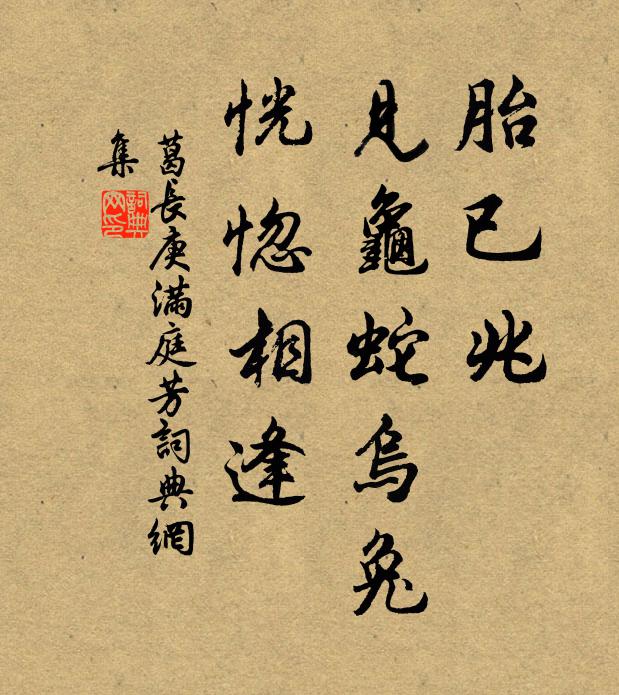 胎已兆
見龜蛇烏兔
恍惚相逢
葛長庚滿庭芳詞典網
集
詞典网印